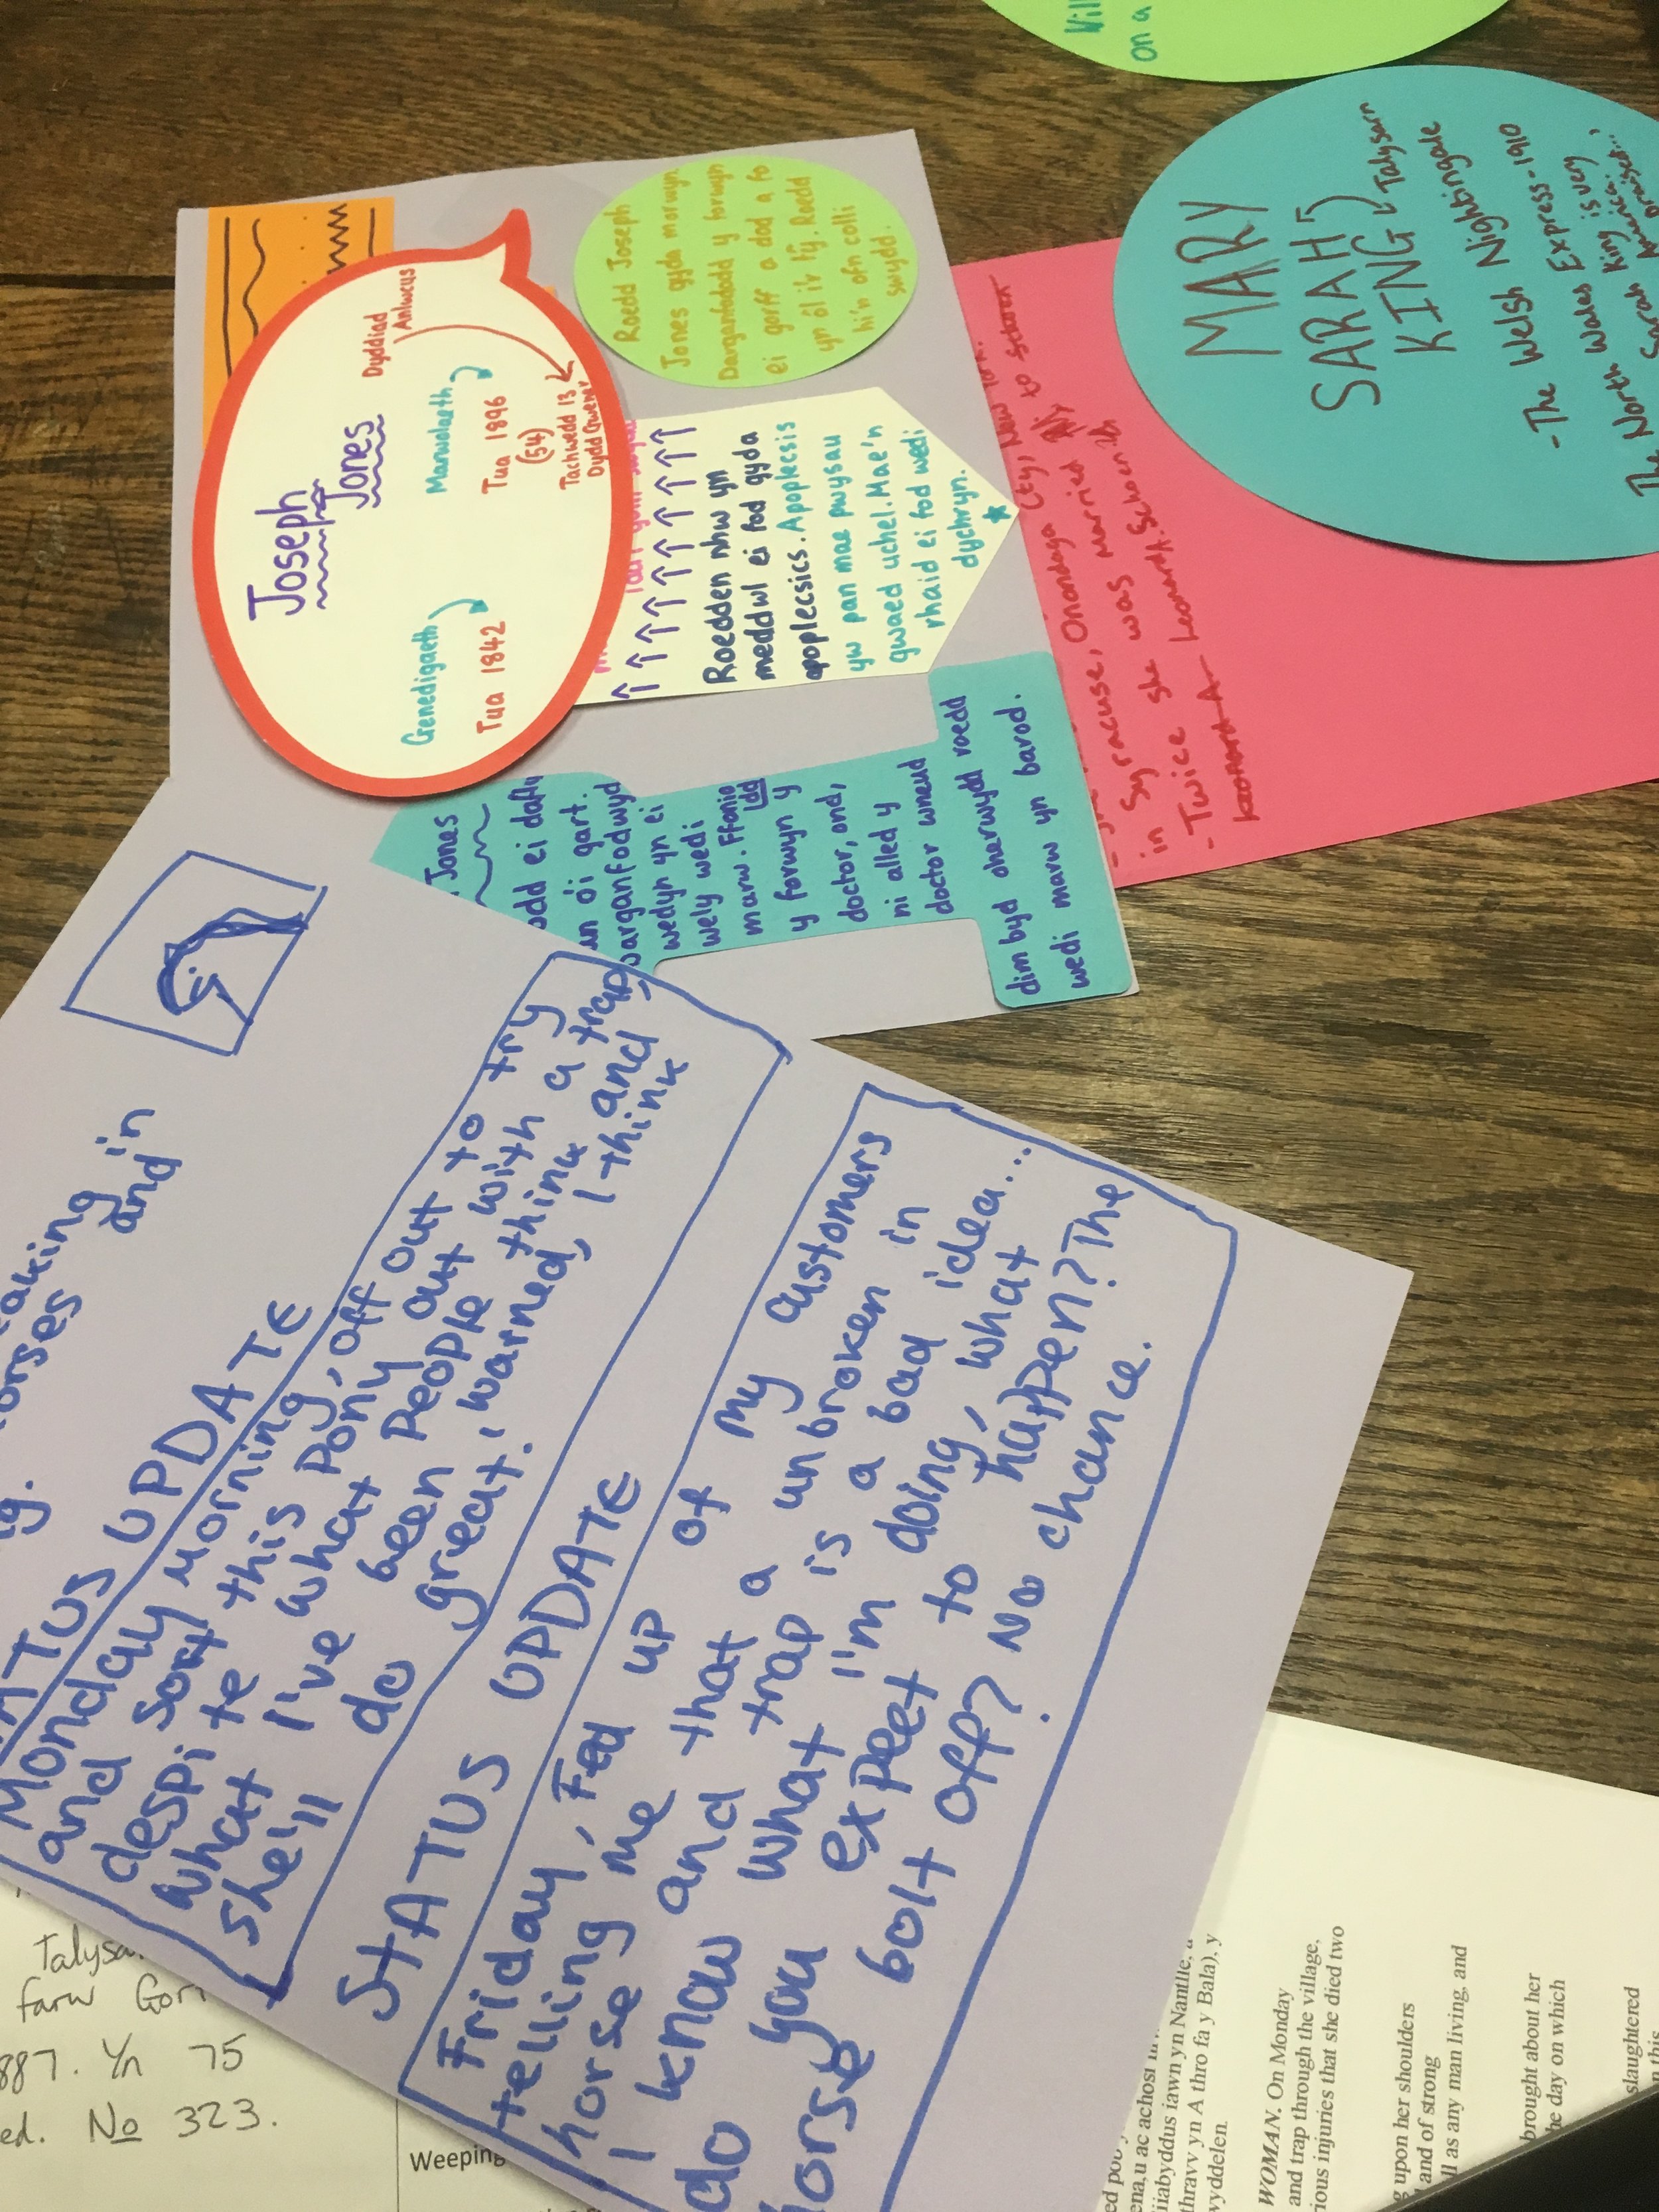 Joseph
Jones
Genedigaeth
Tua 1842
Marwolaeth
Tua 1896
(54)
Dyddiad
Anlwcus
Tachwedd 13
Dydd Gwener
Roedd Joseph
Jones gyda morwyn
Darganfodd y forwyn
ei gorff a dod a fo
yn ôl i'r tŷ. Roedd
hi'n ofn colli
swydd.
Roedden nhw yn
meddwl ei fod gyda
apoplecsics. Apoplecsis
yw pan mae pwysau
gwaed uchel. Mae'n
rhaid ei fod wedi
dychryn.
*
Jones
odd ei daflu
an o'i gart.
arganfodwyd
wedyn yn ei
wely wedi
marw. Ffonio
dd
y forwyn y
doctor, ond,
ni alled y
doctor wneud
dim byd oherwydd roedd
wedi marw yn barod.
MARY
SARAH
KING, Talysarn
- The Welsh Nightingale
North Wales Express - 1910
The Sarah King is very
America.
in Syracuse, Onondaga City, New York.
- Twice she was married to
Leonard A. Schoen
on a
aking
orses and in
ng.
STATUS UPDATE
Monday morning, off out to try
and sort this pony out with a trap,
despite what people think and
what I've been warned, I think
she'll do great.
STATUS UPDATE
Friday, Fed up of my customers
telling me that a unbroken in
horse and trap is a bad idea...
I know what I'm doing, what
do you expect to happen? The
horse bolt off? No chance.
Talysa
farw Gor
887. Yn 75
ed. No 323.
Weeping
iiabyddus iawn yn Nantlle, a
thravv yn A thro fa y Bala), y
wyddelen.
WOMAN. On Monday
and trap through the village,
ious injuries that she died two
g upon her shoulders
and of strong
ll as any man living, and
brought about her
he day on which
slaughtered